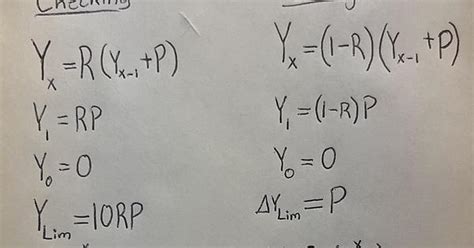 Checking
Yₓ=R(Yₓ₋₁+P)
Y₁=RP
Y₀=0
Y_Lim=10RP
Yₓ=(1-R)(Yₓ₋₁+P)
Y₁=(1-R)P
Y₀=0
ΔY_Lim=P